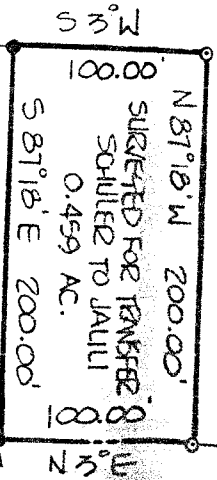 S 3° W
100.00'
N 87°18' W 200.00'
SURVEYED FOR TRANSFER
SCHULER TO JALILI
0.459 AC.
S 87°18' E 200.00'
100.00'
N 3° E